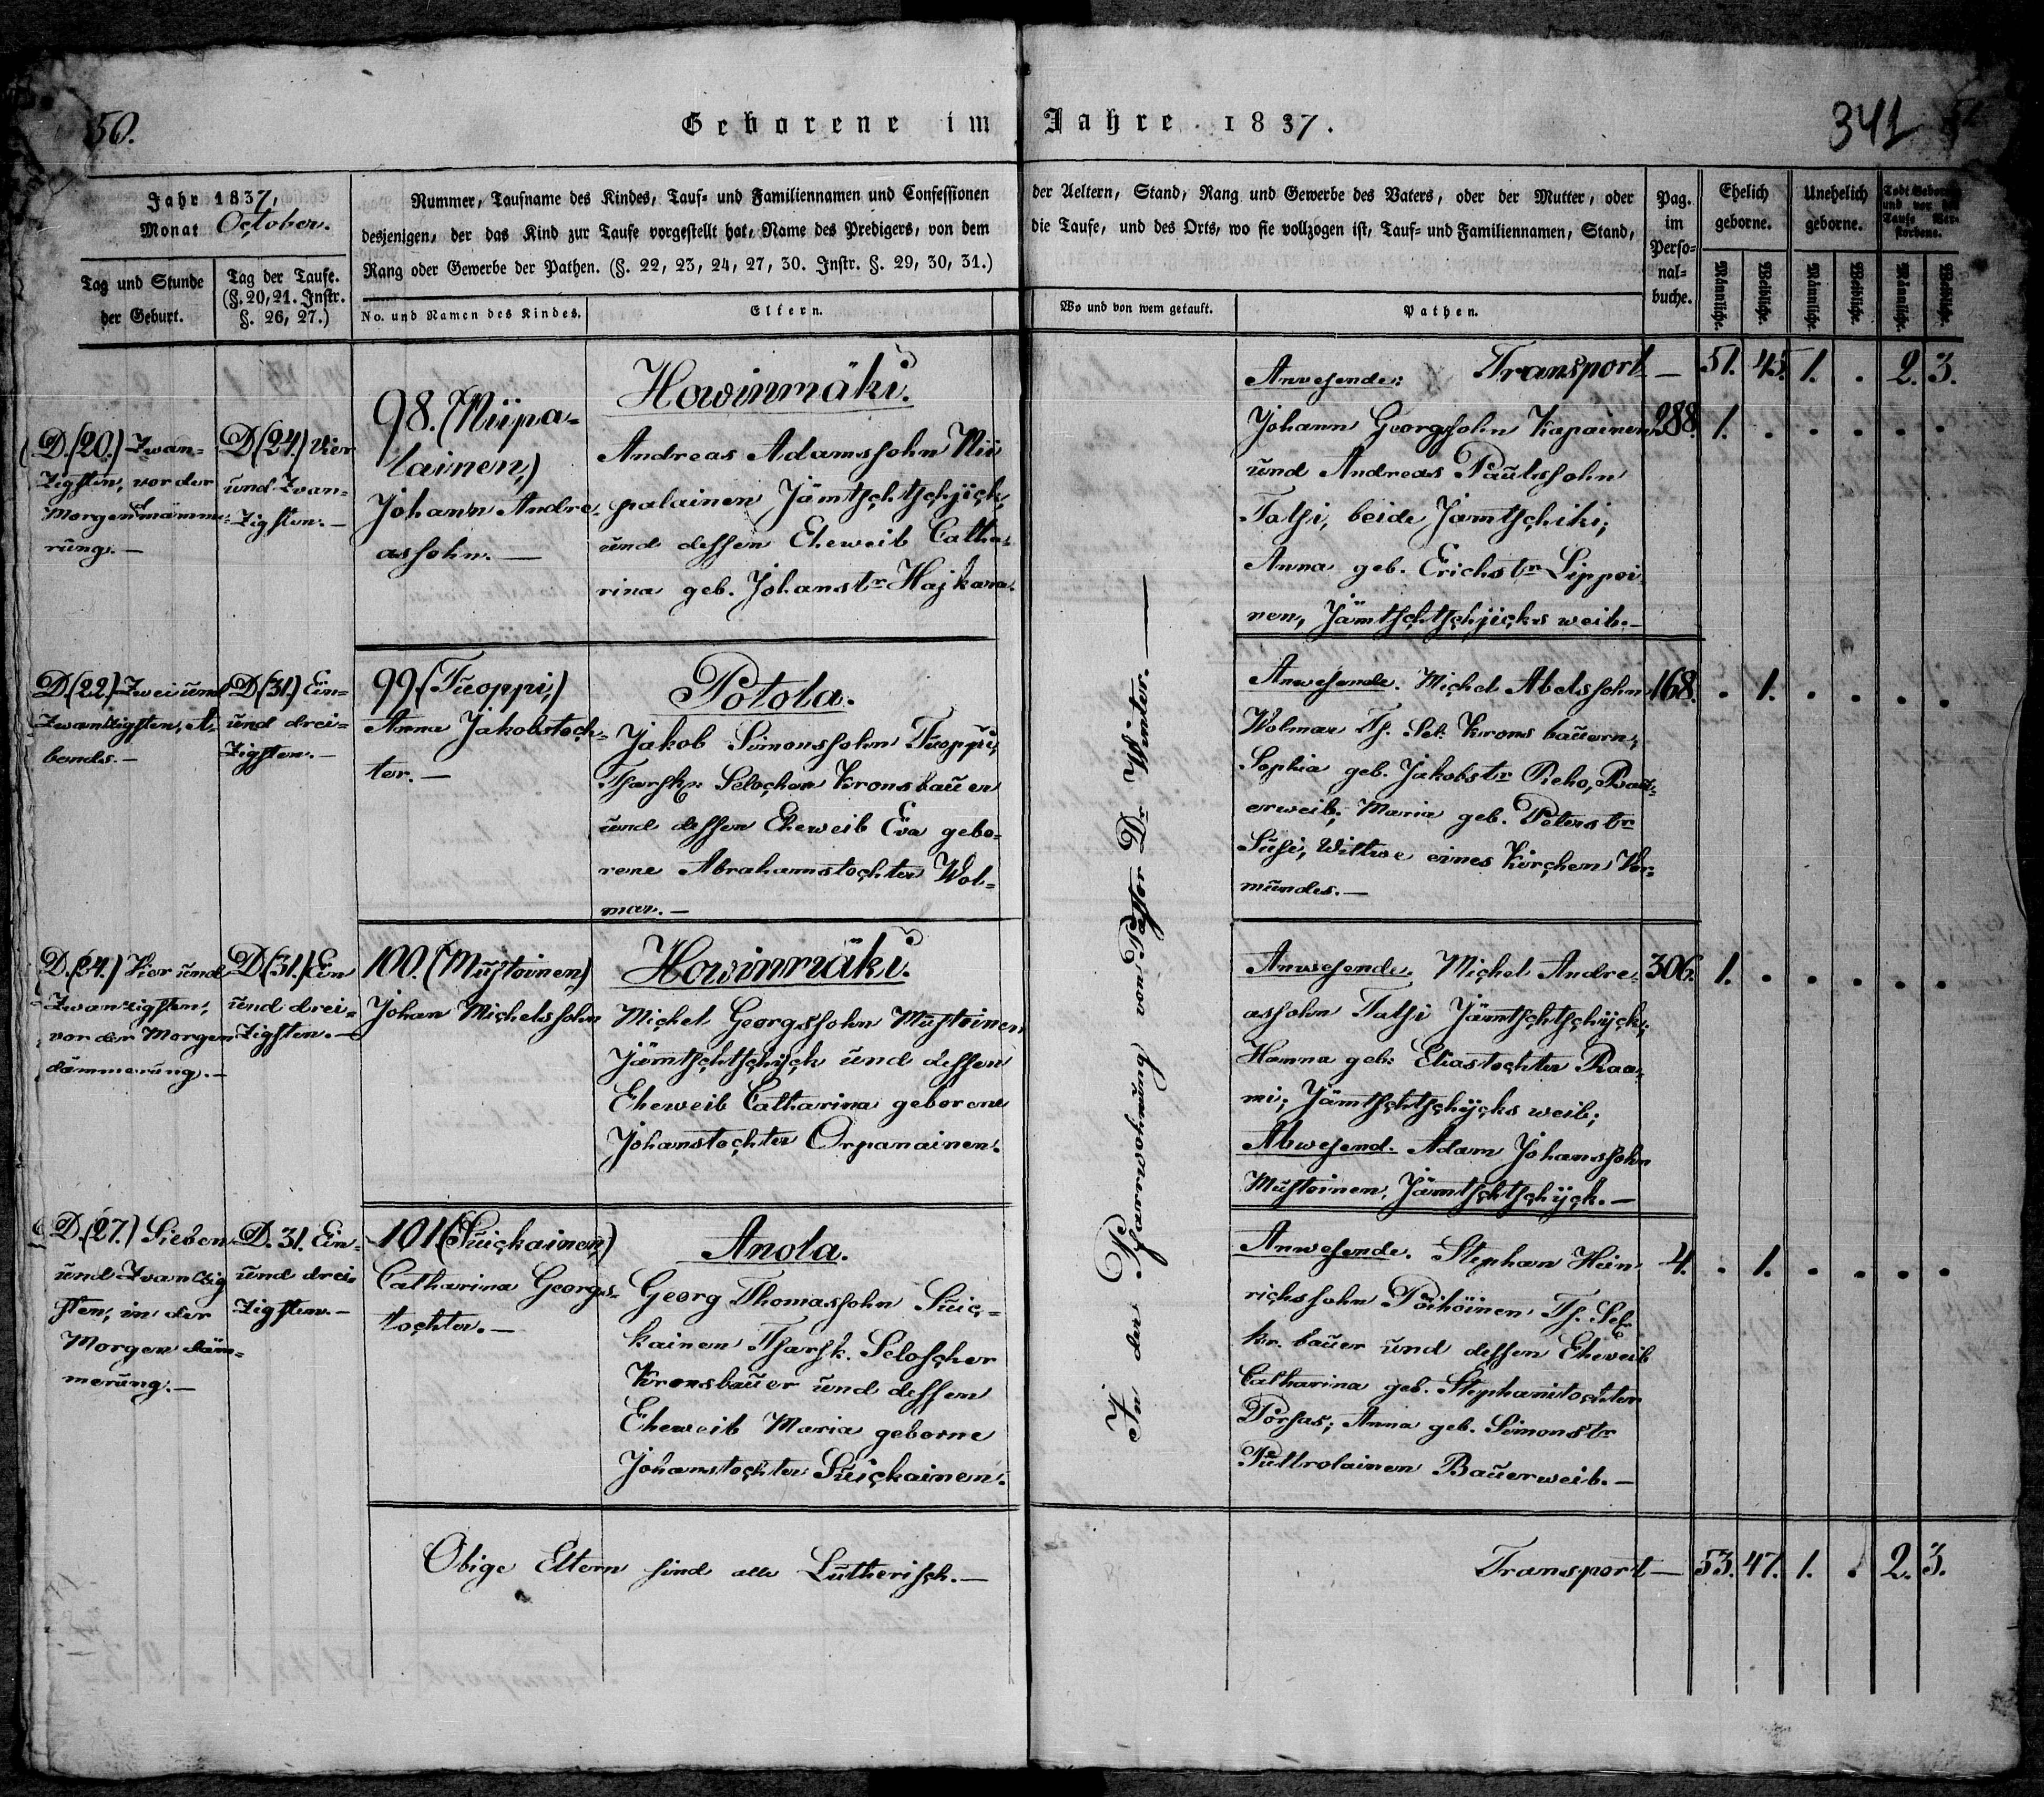 50.
Geborene im Jahre 1837.
341
Jahr 1837,
Monat October.
Tag und Stunde
der Geburt.
Tag der Taufe.
(§. 20, 21. Instr.
§. 26, 27.)
Nummer, Taufname des Kindes, Tauf- und Familiennamen und Confessionen der Aeltern, Stand, Rang und Gewerbe des Vaters, oder der Mutter, oder
desjenigen, der das Kind zur Taufe vorgestellt hat, Name des Predigers, von dem die Taufe, und des Orts, wo sie vollzogen ist, Tauf- und Familiennamen, Stand,
Rang oder Gewerbe der Pathen. (§. 22, 23, 24, 27, 30. Instr. §. 29, 30, 31.)
No. und Namen des Kindes.
Eltern.
Wo und von wem getauft.
Pathen.
Pag.
im
Perso-
nal-
buche.
Ehelich
geborne.
Unehelich
geborne.
Todt Geborne
und vor der
Taufe Ver-
storbene.
Männliche.
Weibliche.
Männliche.
Weibliche.
Männliche.
Weibliche.
Transport — 51. 45. 1. . 2. 3.
D. (20.) Zwan-
zigsten, vor der
Morgendämme-
rung. —
D (24.) Vier
und Zwan-
zigsten. —
98. (Niipa-
lainen,)
Johann Andre-
assohn. —
Howinmäki.
Andreas Adamssohn Nii
palainen, Jämtschtschjick,
und dessen Eheweib Catha-
rina geb. Johanstr Hajkana.
Anwesende:
Johann Georgssohn Kapainen
und Andreas Paulssohn
Tatsi, beide Jamtschiki;
Anna geb. Erichstr Lippoi-
nen, Jämtschtschjicks weib. —
288. 1. . . . . .
D. (22.) Zwei und
Zwanzigsten, A-
bends. —
D (31.) Ein-
und drei-
zigsten. —
99. (Tuoppi,)
Anna Jakobstoch-
ter. —
Potola.
Jakob Simonssohn Tuoppi,
Tsarsk. Seloscher Kronsbauer
und dessen Eheweib Eva gebo-
rene Abrahamstochter Wol-
mar. —
Anwesende. Michel Abelssohn
Wolmar Ts. Sel. Krons bauern;
Sophia geb. Jakobstr Pieho, Bau-
erweib; Maria geb. Peterstr
Susi, Wittwe eines Kirchen Vor-
mundes. —
168. . 1. . . . .
D. (24.) Vier und
Zwanzigsten,
vor der Morgen
dämmerung. —
D (31.) Ein
und drei-
zigsten. —
100. (Mustoinen)
Johan Michelssohn
Howinmäki.
Michel Georgssohn Mustoinen
Jämtschtschijck und dessen
Eheweib Catharina geborene
Johanstochter Orpanainen.
Anwesende. Michel Andre-
assohn Tatsi Jämtschtschijck;
Hanna geb. Eliastochter Raa-
mi; Jämtschtschijcks weib;
Abwesend. Adam Johanssohn
Mustoinen, Jämtschtschijck. —
306. 1. . . . . .
D. (27.) Sieben
und Zwanzig
sten, in der
Morgen däm-
merung. —
D. 31. Ein-
und drei-
zigsten. —
101. (Suickainen,)
Catharina Georgs-
tochter. —
Anola.
Georg Thomassohn Suic-
kainen Tsarsk. Seloscher
Kronsbauer und dessen
Eheweib Maria geborne
Johanstochter Suickainen.
Anwesende. Stephan Hein
richssohn Pöihöinen Ts. Sel.
kr. bauer und dessen Eheweib
Catharina geb. Stephanstochter
Porsas; Anna geb. Simonstr
Puttrolainen Bauerweib. —
4. . 1. . . . .
In der Pfarrwohnung von Pastor Dr Winter. —
Obige Eltern sind alle Lutherisch. —
Transport — 53. 47. 1. . 2. 3.